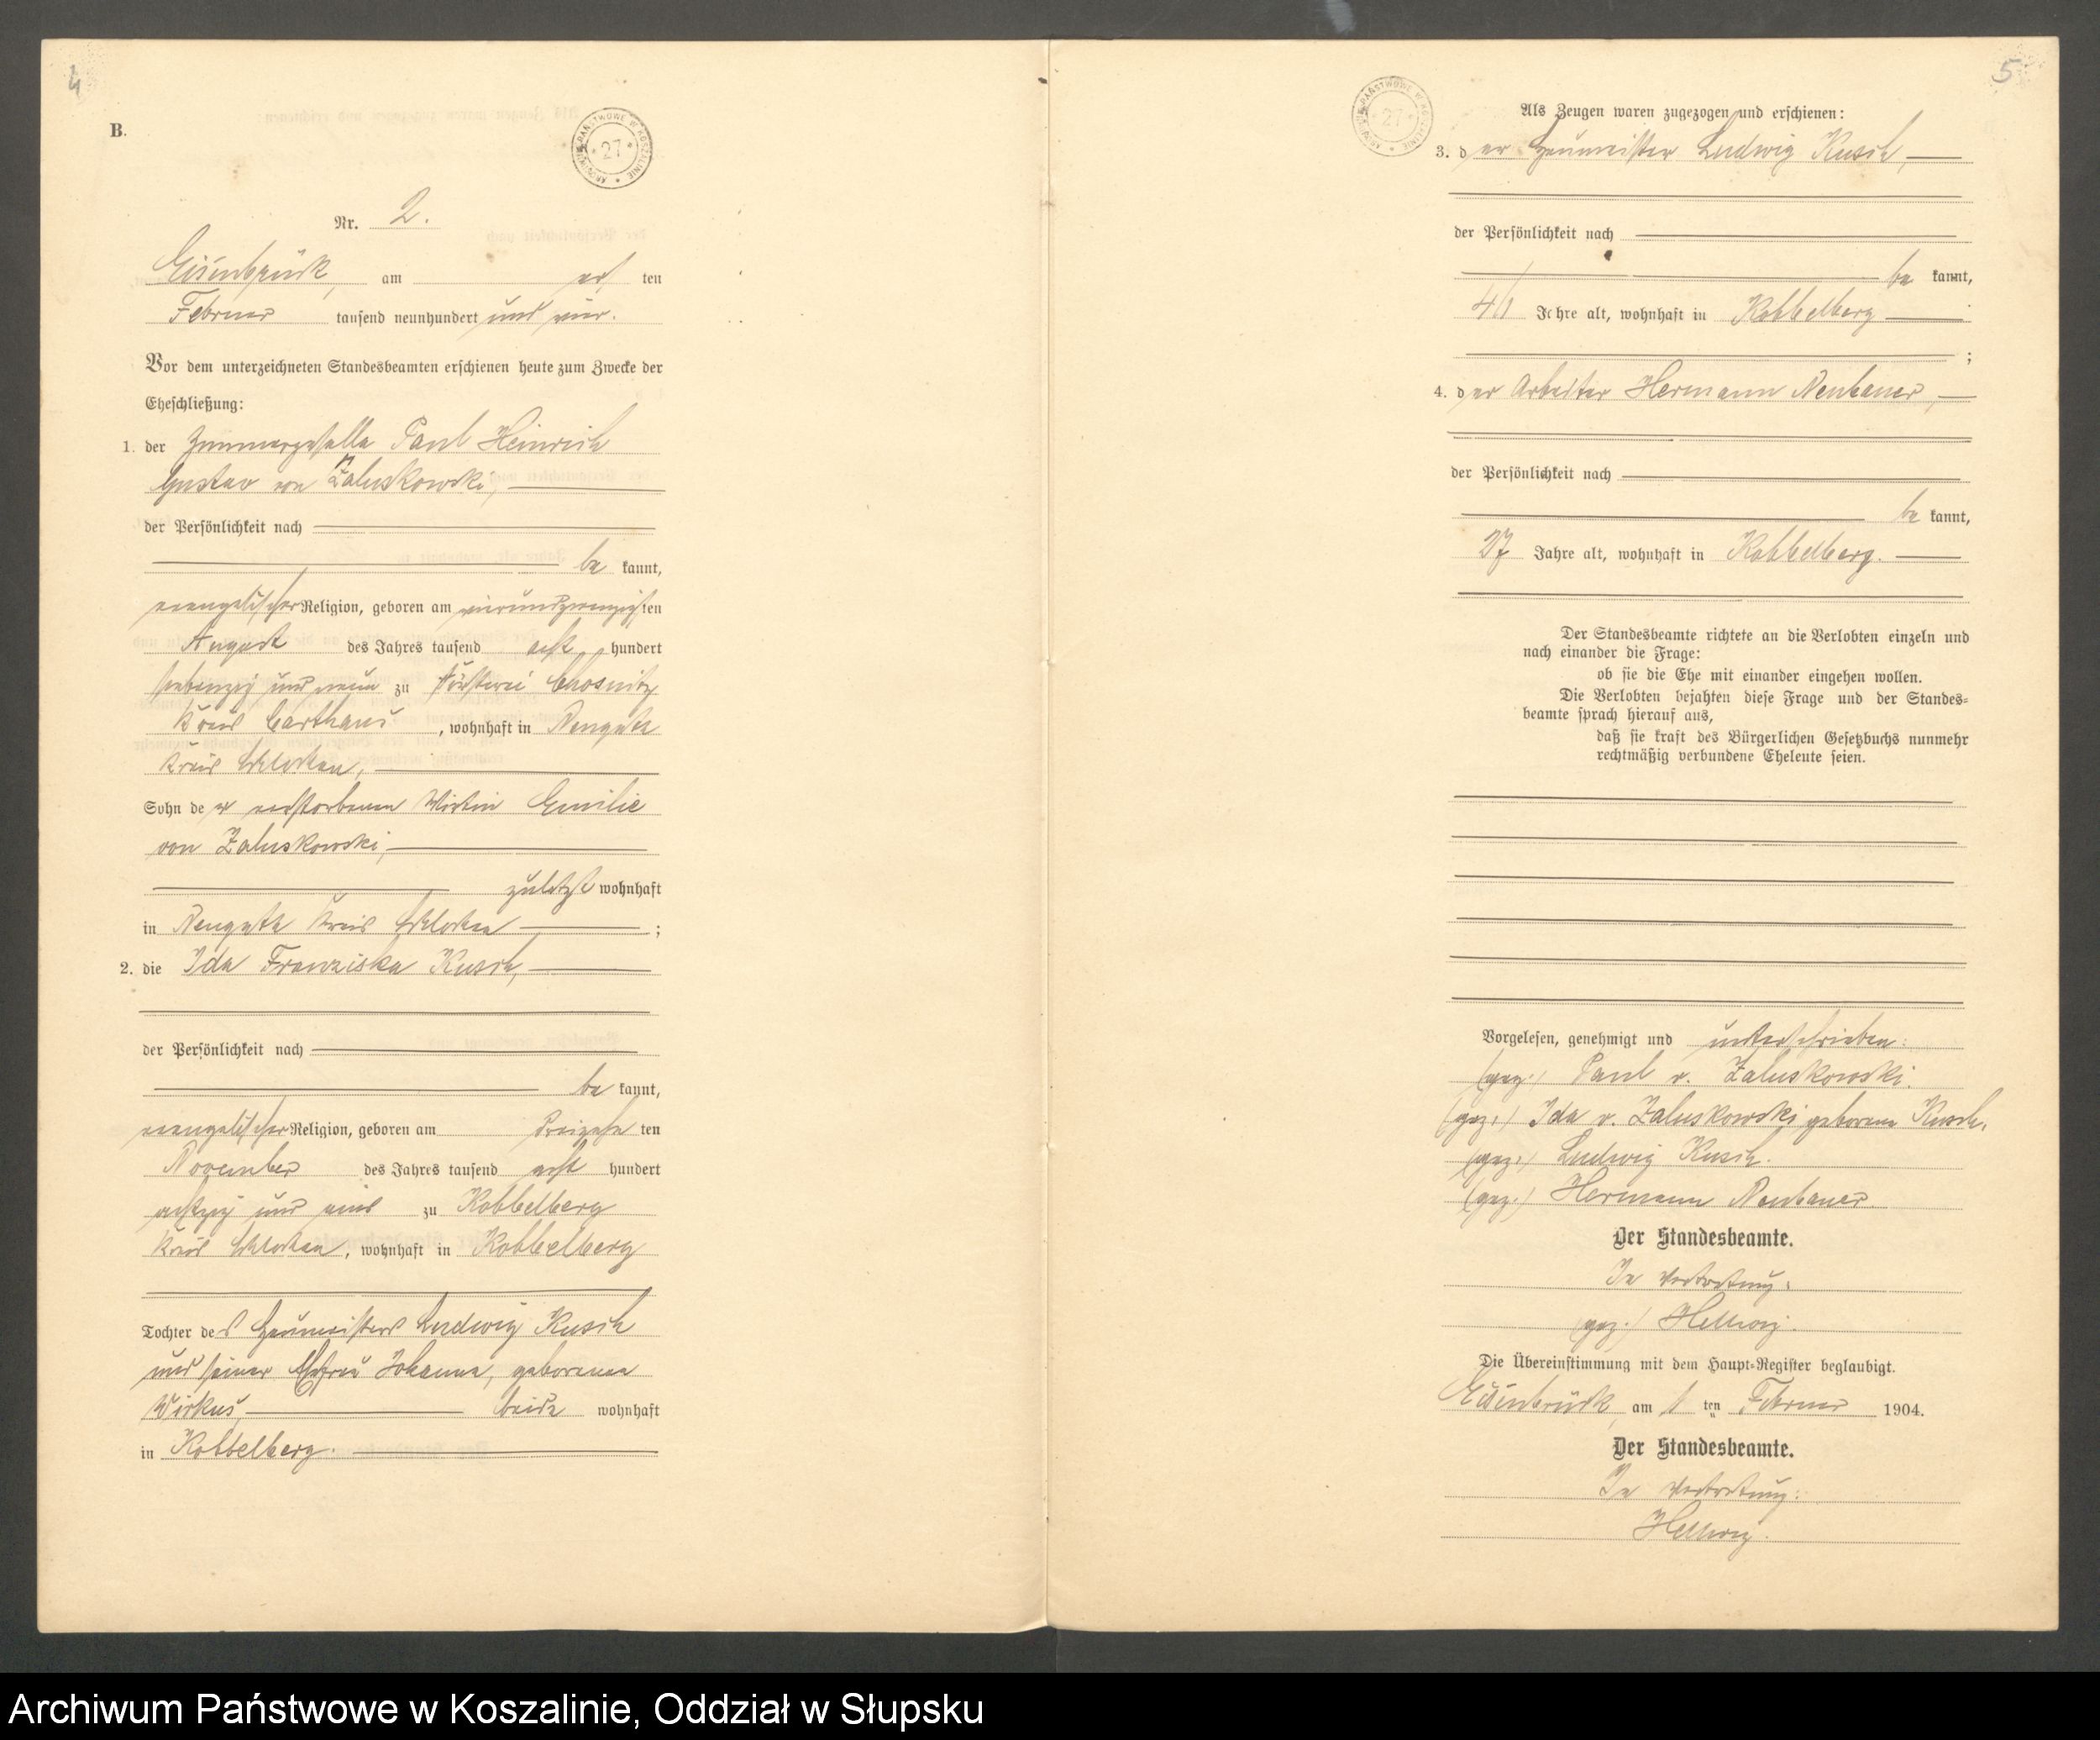 4
B.
ARCHIWUM PAŃSTWOWE W KOSZALINIE * 27 *
Nr. 2.
Eisenbrück, am ersten
Februar tausend neunhundert und vier.
Vor dem unterzeichneten Standesbeamten erschienen heute zum Zwecke der
Eheschließung:
1. der Zimmergeselle Paul Heinrich
Gustav von Zaluskowski,
der Persönlichkeit nach
be kannt,
evangelischer Religion, geboren am vierundzwanzigsten
August des Jahres tausend acht hundert
siebenzig und neun zu Försterei Chosnitz
Kreis Carthaus, wohnhaft in Nenguth
Kreis Schlochau,
Sohn der verstorbenen Wirtin Emilie
von Zaluskowski,
zuletzt wohnhaft
in Nenguth Kreis Schlochau ;
2. die Ida Franziska Kusch,
der Persönlichkeit nach
be kannt,
evangelischer Religion, geboren am dreizehn ten
November des Jahres tausend acht hundert
achtzig und eins zu Kobbelberg
Kreis Schlochau, wohnhaft in Kobbelberg
Tochter des Haumeisters Ludwig Kusch
und seiner Ehefrau Johanna, geborenen
Wirkus, beide wohnhaft
in Kobbelberg.
5
ARCHIWUM PAŃSTWOWE W KOSZALINIE * 27 *
Als Zeugen waren zugezogen und erschienen:
3. der Haumeister Ludwig Kusch,
der Persönlichkeit nach
be kannt,
Jahre alt, wohnhaft in Kobbelberg
;
4. der Arbeiter Hermann Neubauer,
der Persönlichkeit nach
be kannt,
27 Jahre alt, wohnhaft in Kobbelberg.
Der Standesbeamte richtete an die Verlobten einzeln und
nach einander die Frage:
ob sie die Ehe mit einander eingehen wollen.
Die Verlobten bejahten diese Frage und der Standes-
beamte sprach hierauf aus,
daß sie kraft des Bürgerlichen Gesetzbuchs nunmehr
rechtmäßig verbundene Eheleute seien.
Vorgelesen, genehmigt und unterschrieben:
(gez.) Paul v. Zaluskowski.
(gez.) Ida v. Zaluskowski geborene Kusch.
(gez.) Ludwig Kusch.
(gez.) Hermann Neubauer.
Der Standesbeamte.
In Vertretung:
(gez.) Hellwig.
Die Übereinstimmung mit dem Haupt-Register beglaubigt.
Eisenbrück, am 1 ten Februar 1904.
Der Standesbeamte.
In Vertretung:
Hellwig.
Archiwum Państwowe w Koszalinie, Oddział w Słupsku